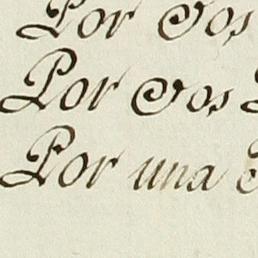 Por Vos
Por Vos
Por una